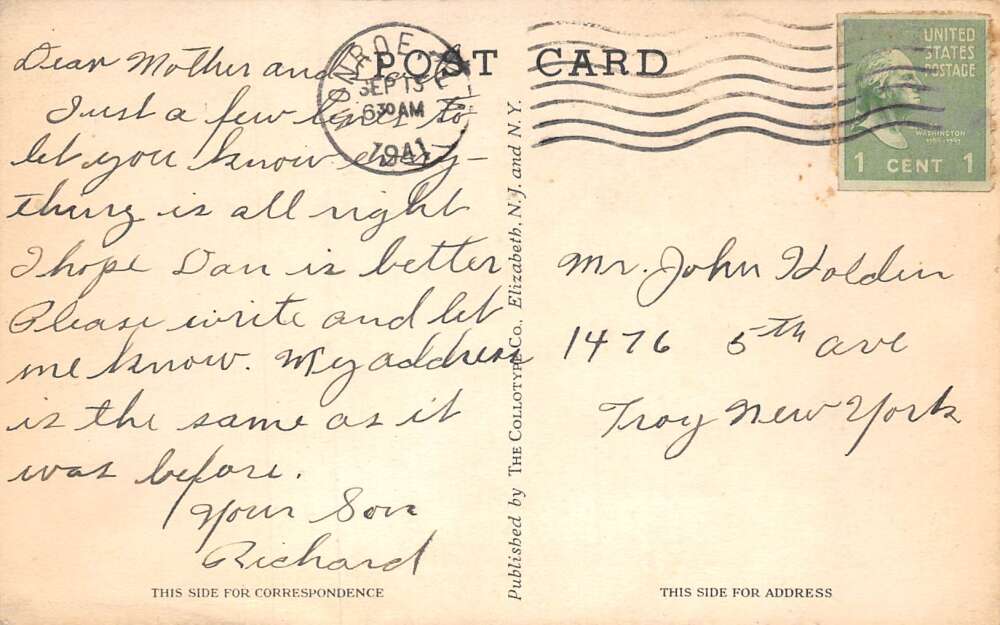 POST CARD
MONROE
SEP 13
6 30 AM
1941
UNITED
STATES
POSTAGE
WASHINGTON
1 CENT 1
Dear Mother and
Just a few lines to
let you know every-
thing is all right
I hope Dan is better
Please write and let
me know. My address
is the same as it
was before.
Your Son
Richard
THIS SIDE FOR CORRESPONDENCE
Published by THE COLLOTYPE CO., Elizabeth, N.J. and N.Y.
Mr. John Holden
1476 5th ave
Troy New York
THIS SIDE FOR ADDRESS